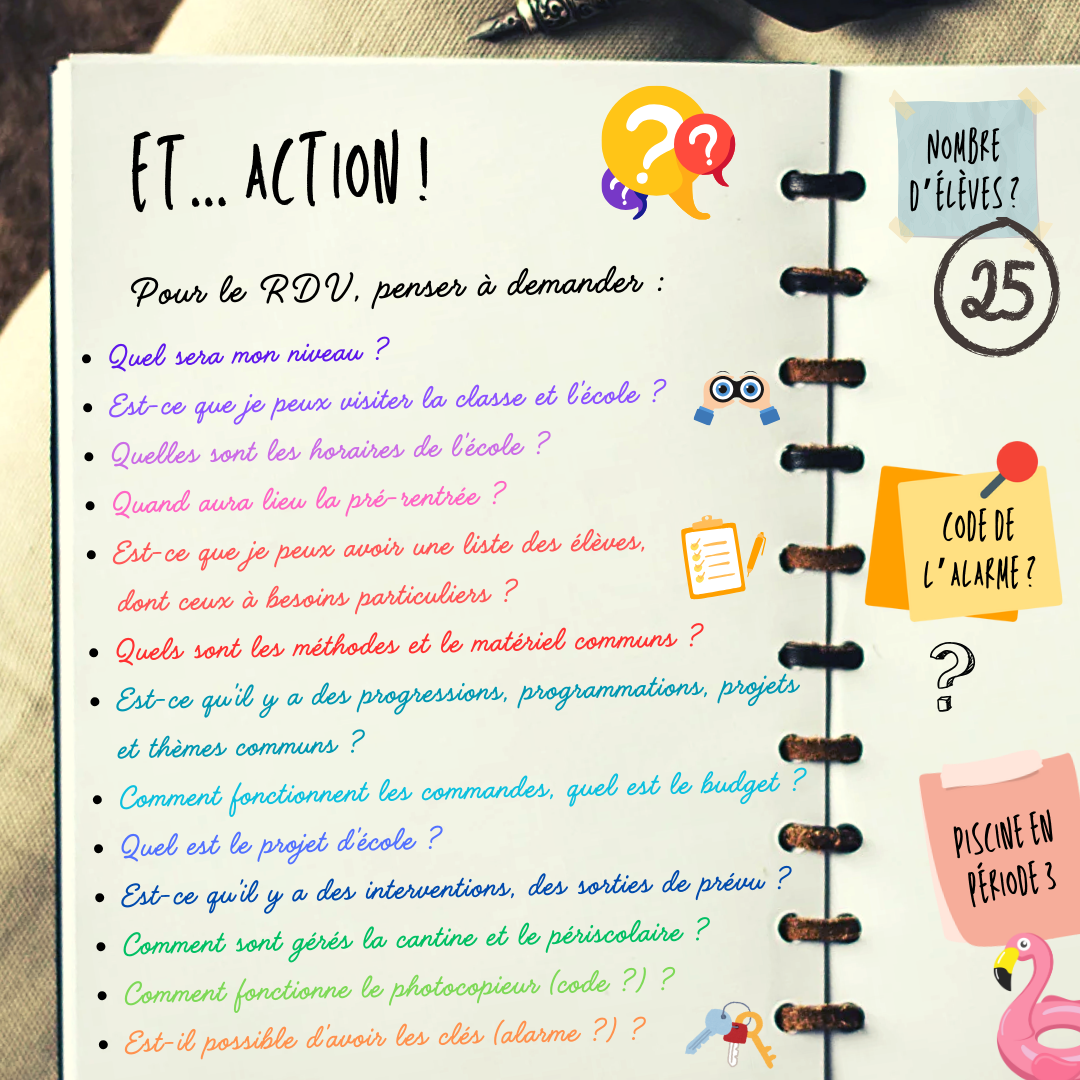 ET... ACTION !
Pour le RDV, penser à demander :
• Quel sera mon niveau ?
• Est-ce que je peux visiter la classe et l'école ?
• Quelles sont les horaires de l'école ?
• Quand aura lieu la pré-rentrée ?
• Est-ce que je peux avoir une liste des élèves,
dont ceux à besoins particuliers ?
• Quels sont les méthodes et le matériel communs ?
• Est-ce qu'il y a des progressions, programmations, projets
et thèmes communs ?
• Comment fonctionnent les commandes, quel est le budget ?
• Quel est le projet d'école ?
• Est-ce qu'il y a des interventions, des sorties de prévu ?
• Comment sont gérés la cantine et le périscolaire ?
• Comment fonctionne le photocopieur (code ?) ?
• Est-il possible d'avoir les clés (alarme ?) ?
NOMBRE
D'ÉLÈVES ?
25
CODE DE
L'ALARME ?
?
PISCINE EN
PÉRIODE 3